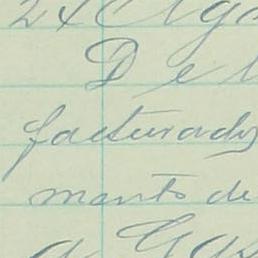 24 Ago
De l
facturado
mento de